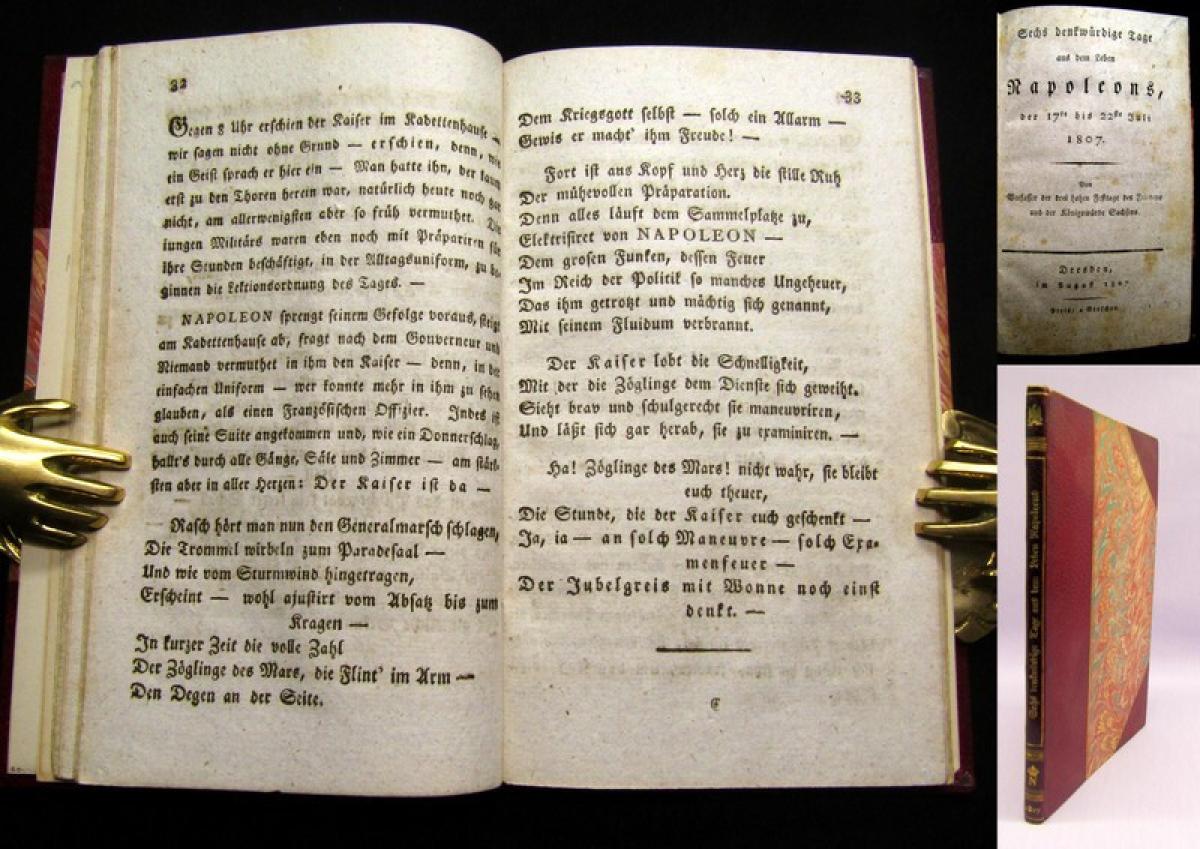 32
Gegen 8 Uhr erschien der Kaiser im Kadettenhause —
wir sagen nicht ohne Grund — erschien, denn, wie
ein Geist sprach er hier ein — Man hatte ihn, der kaum
erst zu den Thoren herein war, natürlich heute noch gar
nicht, am allerwenigsten aber so früh vermuthet. Die
iungen Militärs waren eben noch mit Präpariren für
ihre Stunden beschäftigt, in der Alltagsuniform, zu be-
ginnen die Lektionsordnung des Tages. —
NAPOLEON sprengt seinem Gefolge voraus, steigt
am Kadettenhause ab, fragt nach dem Gouverneur und
Niemand vermuthet in ihm den Kaiser — denn, in der
einfachen Uniform — wer konnte mehr in ihm zu sehen
glauben, als einen Französischen Offizier. Indes ist
auch seine Suite angekommen und, wie ein Donnerschlag,
hallt's durch alle Gänge, Säle und Zimmer — am stärk-
sten aber in aller Herzen: Der Kaiser ist da —
Rasch hört man nun den Generalmarsch schlagen,
Die Trommel wirbeln zum Paradesaal —
Und wie vom Sturmwind hingetragen,
Erscheint — wohl ajustirt vom Absatz bis zum
Kragen —
In kurzer Zeit die volle Zahl
Der Zöglinge des Mars, die Flint' im Arm —
Den Degen an der Seite.
33
Dem Kriegsgott selbst — solch ein Allarm —
Gewis er macht' ihm Freude! —
Fort ist aus Kopf und Herz die stille Ruh
Der mühevollen Präparation.
Denn alles läuft dem Sammelplatze zu,
Elektrisiret von NAPOLEON —
Dem grosen Funken, dessen Feuer
Im Reich der Politik so manches Ungeheuer,
Das ihm getrotzt und mächtig sich genannt,
Mit seinem Fluidum verbrannt.
Der Kaiser lobt die Schnelligkeit,
Mit der die Zöglinge dem Dienste sich geweiht.
Sieht brav und schulgerecht sie maneuvriren,
Und läßt sich gar herab, sie zu examiniren. —
Ha! Zöglinge des Mars! nicht wahr, sie bleibt
euch theuer,
Die Stunde, die der Kaiser euch geschenkt —
Ja, ia — an solch Maneuvre — solch Exa-
menfeuer —
Der Jubelgreis mit Wonne noch einst
denkt. —
C
Sechs denkwürdige Tage
aus dem Leben
Napoleons,
der 17te bis 22ste Juli
1807.
Vom
Verfasser der drei hohen Festtage des Friedens
und der Königswürde Sachsens.
Dresden,
im August 1807
Preis: 4 Groschen.
Sechs denkwürdige Tage aus dem Leben Napoleons